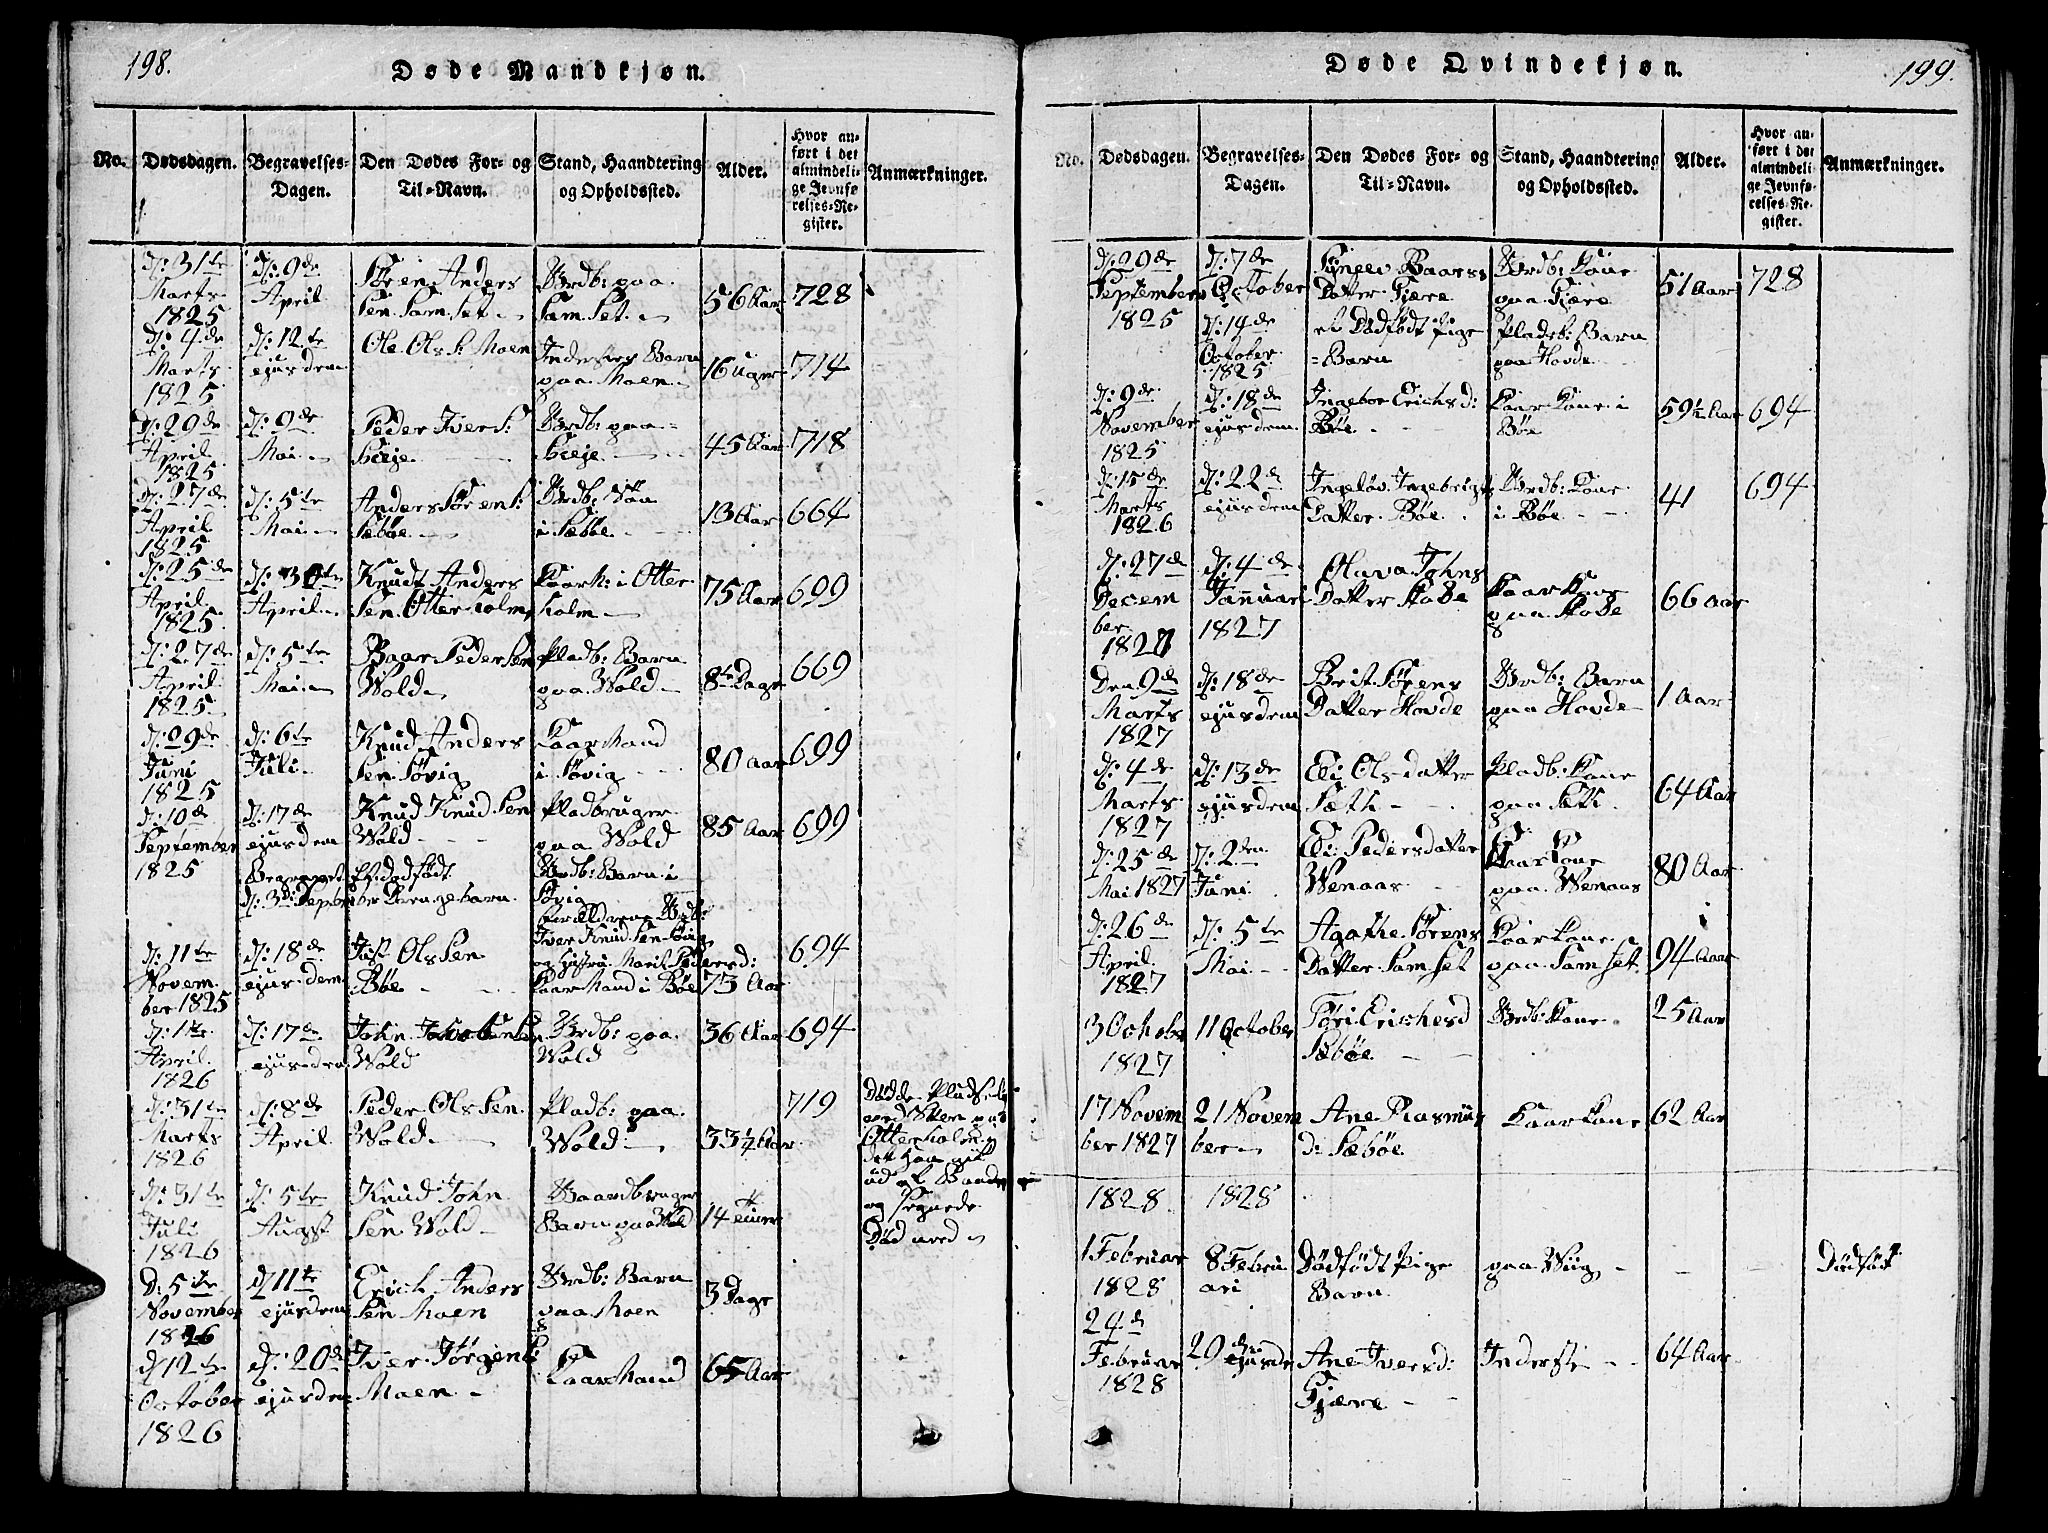 198.
Døde Mandkjøn.
No.
Dødsdagen.
Begravelses-
Dagen.
Den Dødes For- og
Til-Navn.
Stand, Haandtering
og Opholdssted.
Alder.
Hvor an-
ført i det
almindeli-
ge Jevnfø-
relses-Re-
gister.
Anmærkninger.
d: 31te
Marts
1825
d: 9de
April
Sören Anders
Sen Sam Set
Brdb: paa
Sam Set
56 Aar
728
d: 4de
Marts
1825
d: 12te
ejusdem
Ole Ols S: Moen
Inderstes Barn
paa Moen
16 uger
714
d: 29de
April
1825
d: 9de
Mai
Peder Ivers:
Brdb: paa
45 Aar
718
d: 27de
April
1825
d: 5te
Mai
Anders Sörens:
Sæböe
Brdb: Sön
i Sæböe
13 Aar
664
d: 25de
April
1825
d: 30te
April
Knud Anders
Sen Otterholm
Kaarm: i Otter
holm
75 Aar
699
d: 27de
April
1825
d: 5te
Mai
Baar Peder Sen
Wold
Pladb: Barn
paa Wold
8te Dage
669
d: 29de
Juni
1825
d: 6te
Juli
Knud Anders
Sen Søvig
Kaar Mand
i Søvig
80 Aar
699
d: 10de
September
1825
d: 17de
ejusdem
Knud Knud Sen
Wold
Pladbruger
paa Wold
85 Aar
699
Begravet
d: 3d: September
Et dødfødt
Drengebarn
Brdb: Barn i
Søvig
Forældrene Brdb:
Iver Knud Sen Søvig
og Hustru Marit Peders d:
d: 11te
Novem
ber 1825
d: 18de
ejusdem
Ols Sen
Böe
Kaar Mand i Böe
73 Aar
694
d: 1te
April
1826
d: 17de
ejusdem
John Jacob Sen
Wold
Brdb: paa
Wold
36 Aar
694
d: 31te
Marts
1826
d: 8de
April
Peder Ols Sen
Wold
Pladb: paa
Wold
33½ Aar
719
Døde Pludselig
ved Søen paa
Otterholm
det han gik
ud af Baaden
og Segnede
Død need
d: 31te
Juli
1826
d: 5te
Augst
Knud John
Sen Wold
Gaardbruger
Barn paa Wold
14
d: 5te
November
1826
d 11te
ejusdem
Erich Anders
Sen Moen
Brdb: Barn
paa Moen
3 Dage
d 12te
October
1826
d: 20de
ejusdem
Iver Jørgens:
Moen
Kaar Mand
65 Aar
199.
Døde Qvindekjøn.
No.
Dødsdagen.
Begravelses-
Dagen.
Den Dødes For- og
Til-Navn.
Stand, Haandtering
og Opholdssted.
Alder.
Hvor an-
ført i det
almindeli-
ge Jevnfø-
relses-Re-
gister.
Anmærkninger.
d: 29de
September
1825
d: 7de
October
Baars
Datter Gjære
Brdb: Kone
paa Gjære
51 Aar
728
d: 14de
October
1825
et Dødfødt Pige
=Barn
Pladsb: Barn
paa Hovde
d: 9de
November
1825
d: 18de
ejusdem
Ingebor Erichs d:
Böe
Kaar Kone i
Böe
59½ Aar
694
d: 15de
Marts
1826
d: 22de
ejusdem
Ingeløv Ingebrigts
Datter Böe
Brdb: Kone
i Böe
41
694
d: 27de
Decem
ber
d: 4de
Januari
1827
Olava Johns
Datter
Kaar Kone
paa
66 Aar
Den 9de
Marts
1827
d: 18de
ejusdem
Brit Sörens
Datter Hovde
Brdb: Barn
paa Hovde
1 Aar
d: 4de
Marts
1827
d: 13de
ejusdem
Eli Ols datter
Sæth
Pladb: Kone
paa Sæth
64 Aar
d: 25de
Mai 1827
d: 2den
Juni
Eli Peders datter
Wenaas
Kaar Kone
paa Wenaas
80 Aar
d: 26de
April
1827
d: 5te
Mai
Agathe Sörens
Datter Sam Set
Kaar kone
paa Sam Set
94 Aar
3 October
1827
11 October
Tøri Eriches d
Sæböe
Brdb: Kone
25 Aar
17 Novem
ber 1827
21 Novem
ber
Ane Rasmus
d: Sæböe
Kaar kone
62 Aar
1828
1828
1 Februar
1828
8 Febru
ari
Dødfødt Pige
Barn
paa Wiig
Dødfød
24de
Februar
1828
29de
ejusdem
Ane Ivers d:
Gjære
Inderste
64 Aar